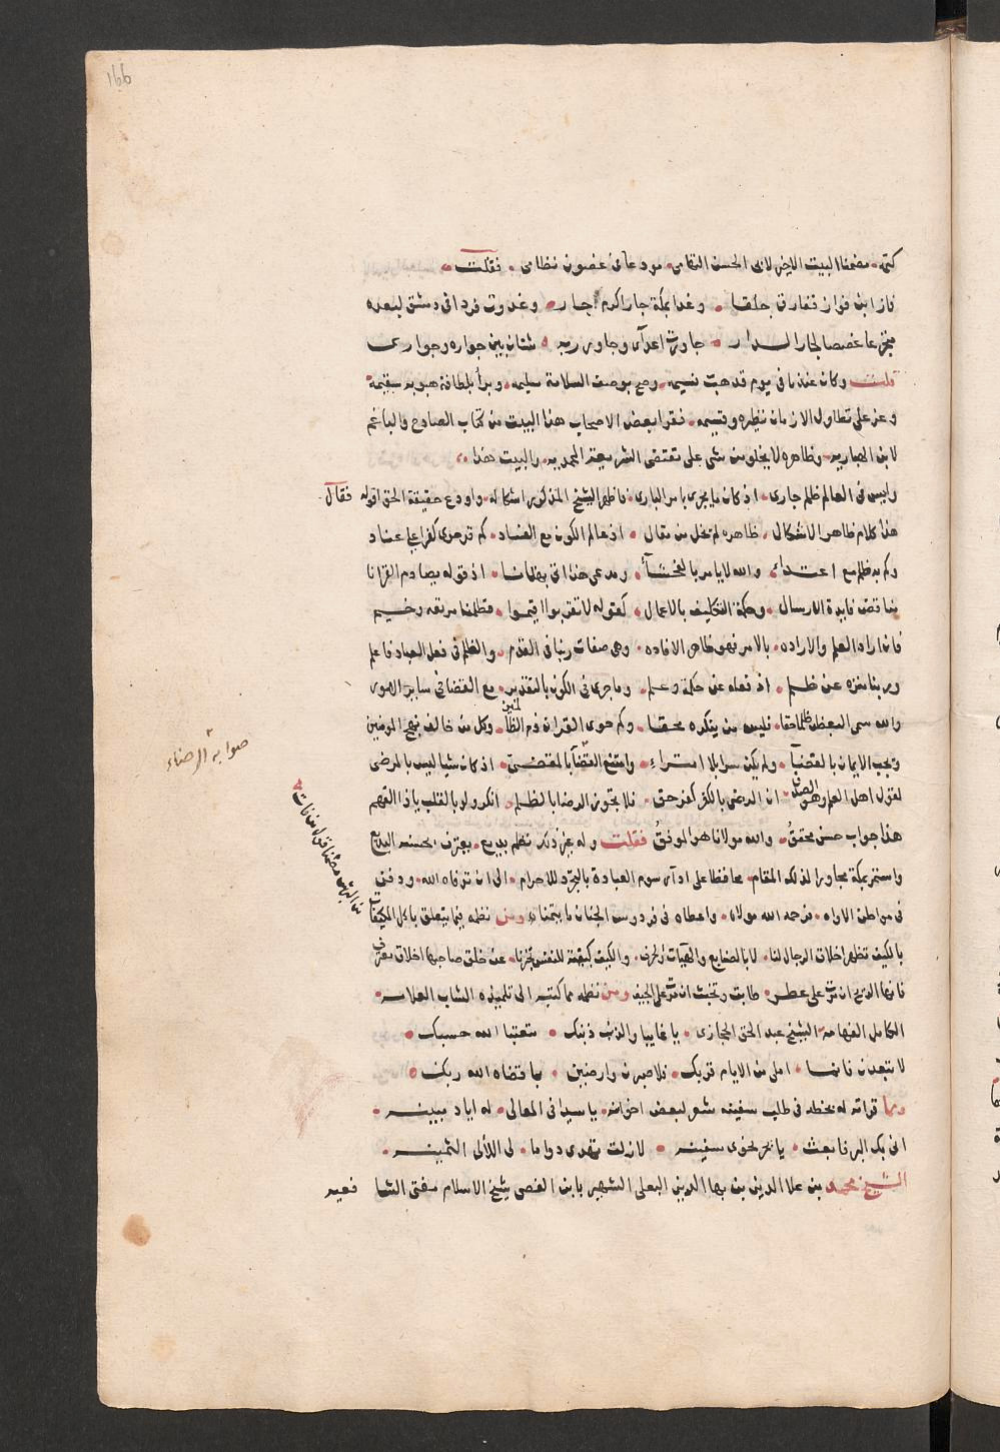 ١٦٦
كتبه مضمنا البيت الاخير لابى الحسن التهامى مودعا فى غضون نظامى فقلت
فاز ابن فواز ففارق جلقا وغدا بمكة جارا كرم جار وغدوت فردا فى دمشق لبعده
متجرعا غصصا لجار الدار جاورت اعدآى وجاور ربه شتان بين جواره وجوارى
قلت وكان عندنا فى يوم قد هبت نسيمه وصح بوصف السلامة سليمه وبرأ بلطافة هبوبه سقيمه
وعز على تطاول الازمان نظيره وقسيمه فقرا بعض الاصحاب هذا البيت من كتاب الصادح والباغم
لابن الهبارية وظاهره لا يخلو من شى على مقتضى الشريعة المحمديه والبيت هذا
وليس فى العالم ظلم جارى اذ كان ما يجرى بامر البارى فاظهر الشيخ المذكور اشكاله واودع حقيقة الحق اقواله فقال
هذا كلام ظاهر الاشكال ظاهره لم يخل من مقال اذ عالم الكون مع الفساد كم قد حوى كفرا على عناد
وكم به ظلم مع اعتداء والله لا يامر بالفحشآء ومدعى هذا اتى بهتانا اذ قوله يصادم القرانا
يناقض فايدة الارسال وحكمة التكليف بالاعمال كقوله لا تقربوا اقيموا فظلمنا مرتعه وخيم
فان اراد العلم والاراده بالامر فهو ظاهر الافاده وهى صفات ربنا فى القدم والظلم فى فعل العباد فاعلم
وربنا منزه عن ظلم اذ فعله عن حكمة وعلم وما جرى فى الكون بالتقدير مع القضا فى ساير الامور
والله سمى البعض ظلما حقا فليس من ينكره محقا وكم حوى القران ذم الظالمين وكل من خالف نهج المومنين
ويجب الايمان بالقضآ ولم يكن سرا بلا امتراء وامتنع القضآ بالمقتضى اذ كان شيا ليس بالمرضى
لقول اهل العلم وهو الصدق ان الرضى بالكفر كفر حق فلا يجوز الرضا بالظلم انكر ولو بالقلب ياذا الفهم
هذا جواب حسن محقق والله مولانا هو الموفق فقلت وله غير ذلك نظم بديع يعترف بحسنه البديع
واستمر بمكة مجاورا لذلك المقام محافظا على ادآء رسوم العبادة بالتجرد للاحرام الى ان توفاه الله ودفن
فى مواطن الاواه فرحمه الله مولاه واعطاه فى فردوس الجنان ما يتمناه ومن نظمه فيما يتعلق باكل المكيفات
بالكيف تظهر اخلاق الرجال لنا لا بالصنايع والهيآت والحرف والكيف كيفية للنفس تخبرنا عن خلق صاحبها اخلاق معترف
فانها الريح ان مرت على عطر طابت وتخبث ان مرت على الجيف ومن نظمه مما كتبه الى تلميذه الشاب العلامه
الكامل الفهامة الشيخ عبد الحق الحجازى يا غايبا والذنب ذنبك متعتبا الله حسبك
لا تبعدن فانما املى من الايام قربك فلاصبرن وارضين بما قضاه الله ربك
ومما قراته له بخطه فى طلب سفينه شعر لبعض اخوانه يا سيدا فى المعالى له اياد مبينه
انى بك البر فابعث يا بحر نحوى سفينه لازلت تهدى دواما لى اللآلى الثمينه
الشيخ محمد بن علا الدين بن بها الدين البعلى الشهير بابن الفصى شيخ الاسلام مفتى الشا فعيه
صوابه الرضاء